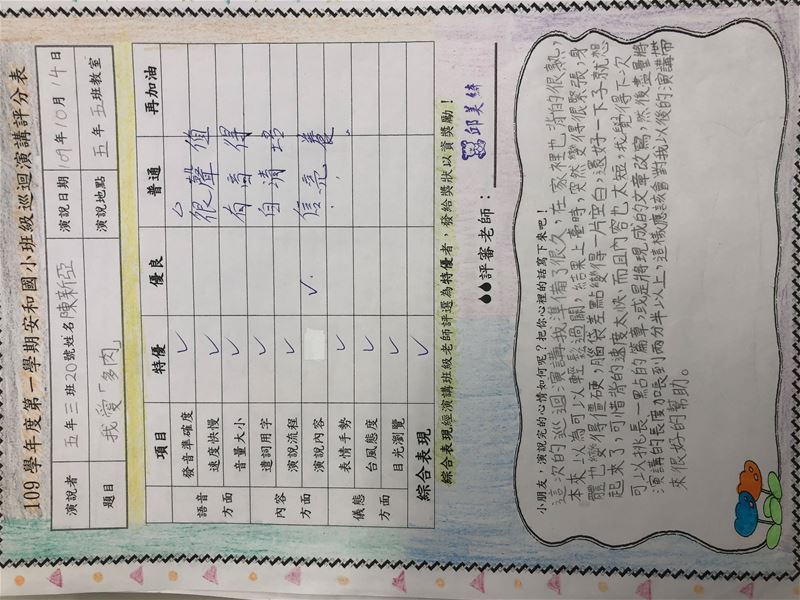 109學年度第一學期安和國小班級巡迴演講評分表
演說者 五年三班20號姓名陳新亞 演說日期 109年10月14日
題目 我愛「多肉」 演說地點 五年五班教室
項目 特優 優良 普通 再加油
語音方面 發音準確度 ✓
速度快慢 ✓
音量大小 ✓
內容方面 遣詞用字 ✓
演說流程 ✓
演說內容 ✓
儀態方面 表情手勢 ✓
台風態度 ✓
目光瀏覽 ✓
綜合表現 ✓
很有自信
聲音清亮
值得培養.
綜合表現經演講班級老師評選為特優者,發給獎狀以資獎勵!
評審老師: 邱美綺
小朋友,演說完的心情如何呢?把你心裡的話寫下來吧!
這次的巡迴演講我準備了很久,在家裡也背的很熟,
本來以為可以輕鬆過關,結果上臺時,突然變得很緊張,身
體也變得僵硬,腦袋差點變得一片空白,還好一下子就想
起來了,可惜背的速度太快,而且內容也太短,我覺得下次
可以挑長一點的篇章,或是將現成的文章改寫,然後盡量將
演講的長度加長到兩分半以上,這樣應該會對我以後的演講帶
來很好的幫助。